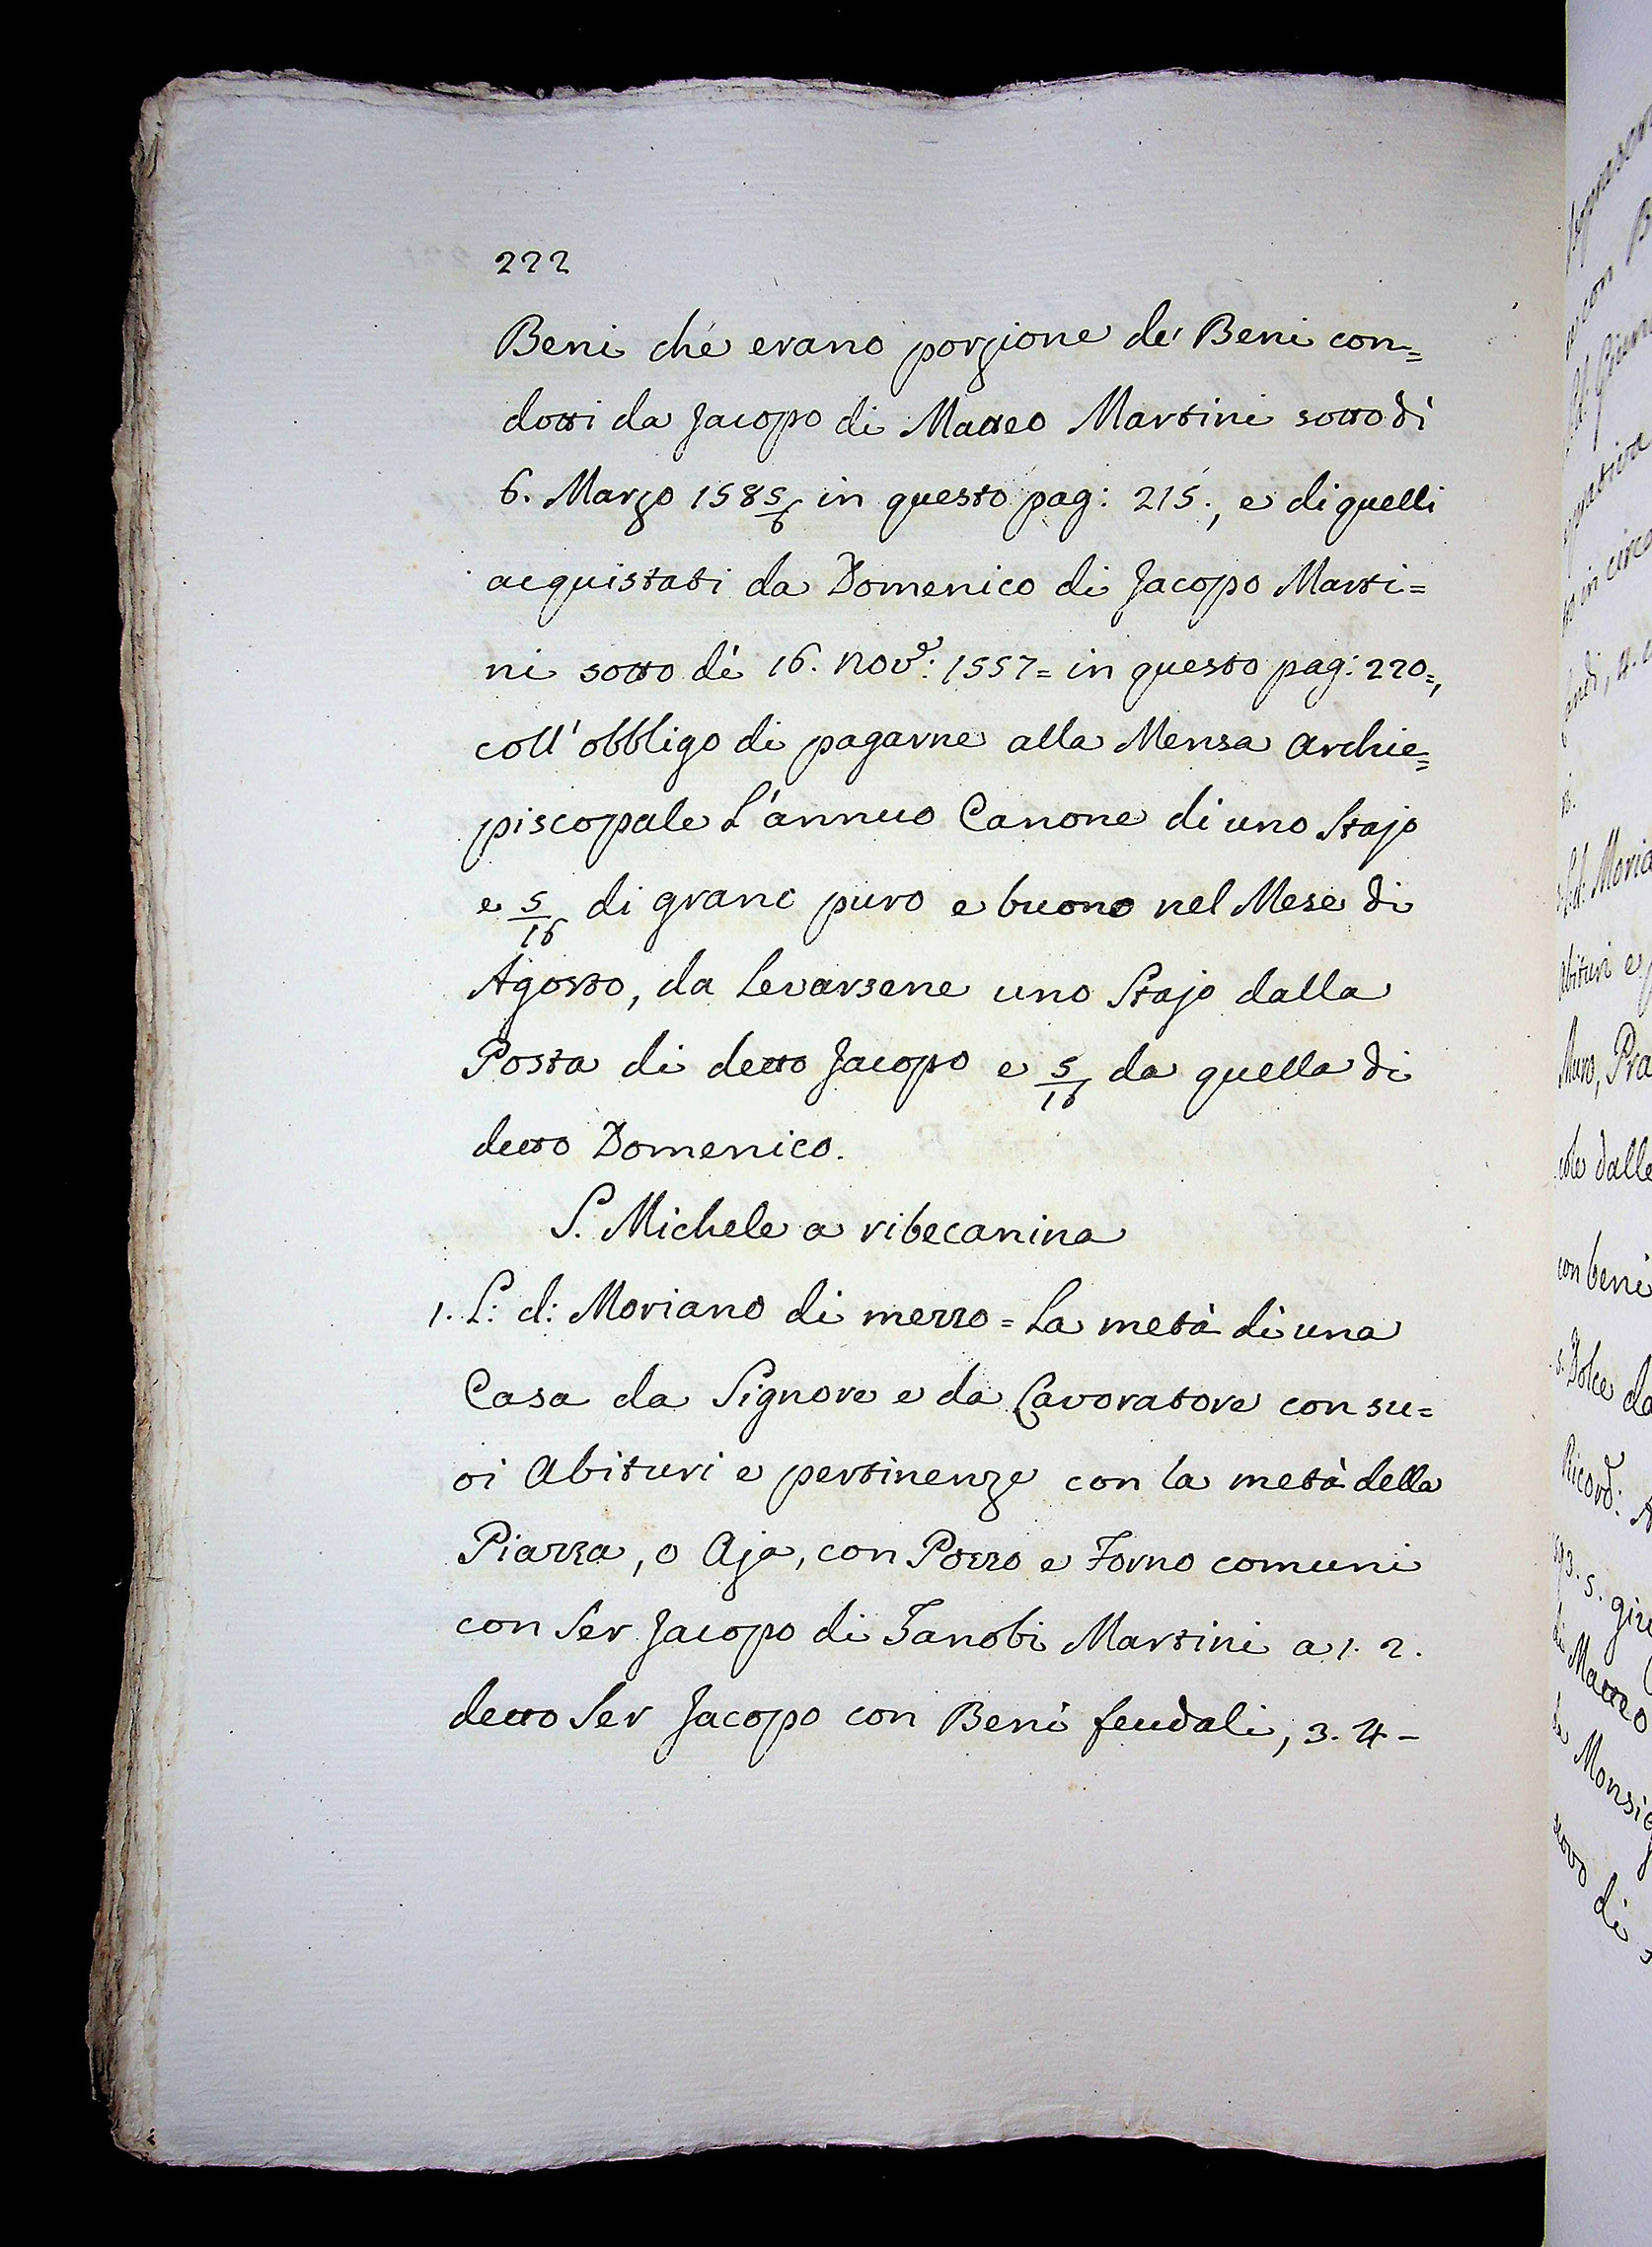 222
Beni che erano porzione de' Beni con=
dotti da Jacopo di Matteo Martini sotto dì
6. Marzo 1585/6 in questo pag: 215., e di quelli
acquistati da Domenico di Jacopo Marti=
ni sotto dì 16. Nov.e: 1557= in questo pag: 220=,
coll'obbligo di pagarne alla Mensa Archie=
piscopale L'annuo Canone di uno Stajo
e 5/16 di grano puro e buono nel Mese di
Agosto, da Levarsene uno Stajo dalla
Posta di detto Jacopo e 5/16 da quella di
detto Domenico.
S. Michele a ribecanina
1. L: d: Moriano di mezzo = La metà di una
Casa da Signore e da Lavoratore con su=
oi Abituri e pertinenze con la metà della
Piazza, o Aja, con Pozzo e Forno comuni
con Ser Jacopo di Zanobi Martini a 1. 2.
detto Ser Jacopo con Beni feudali, 3. 4-